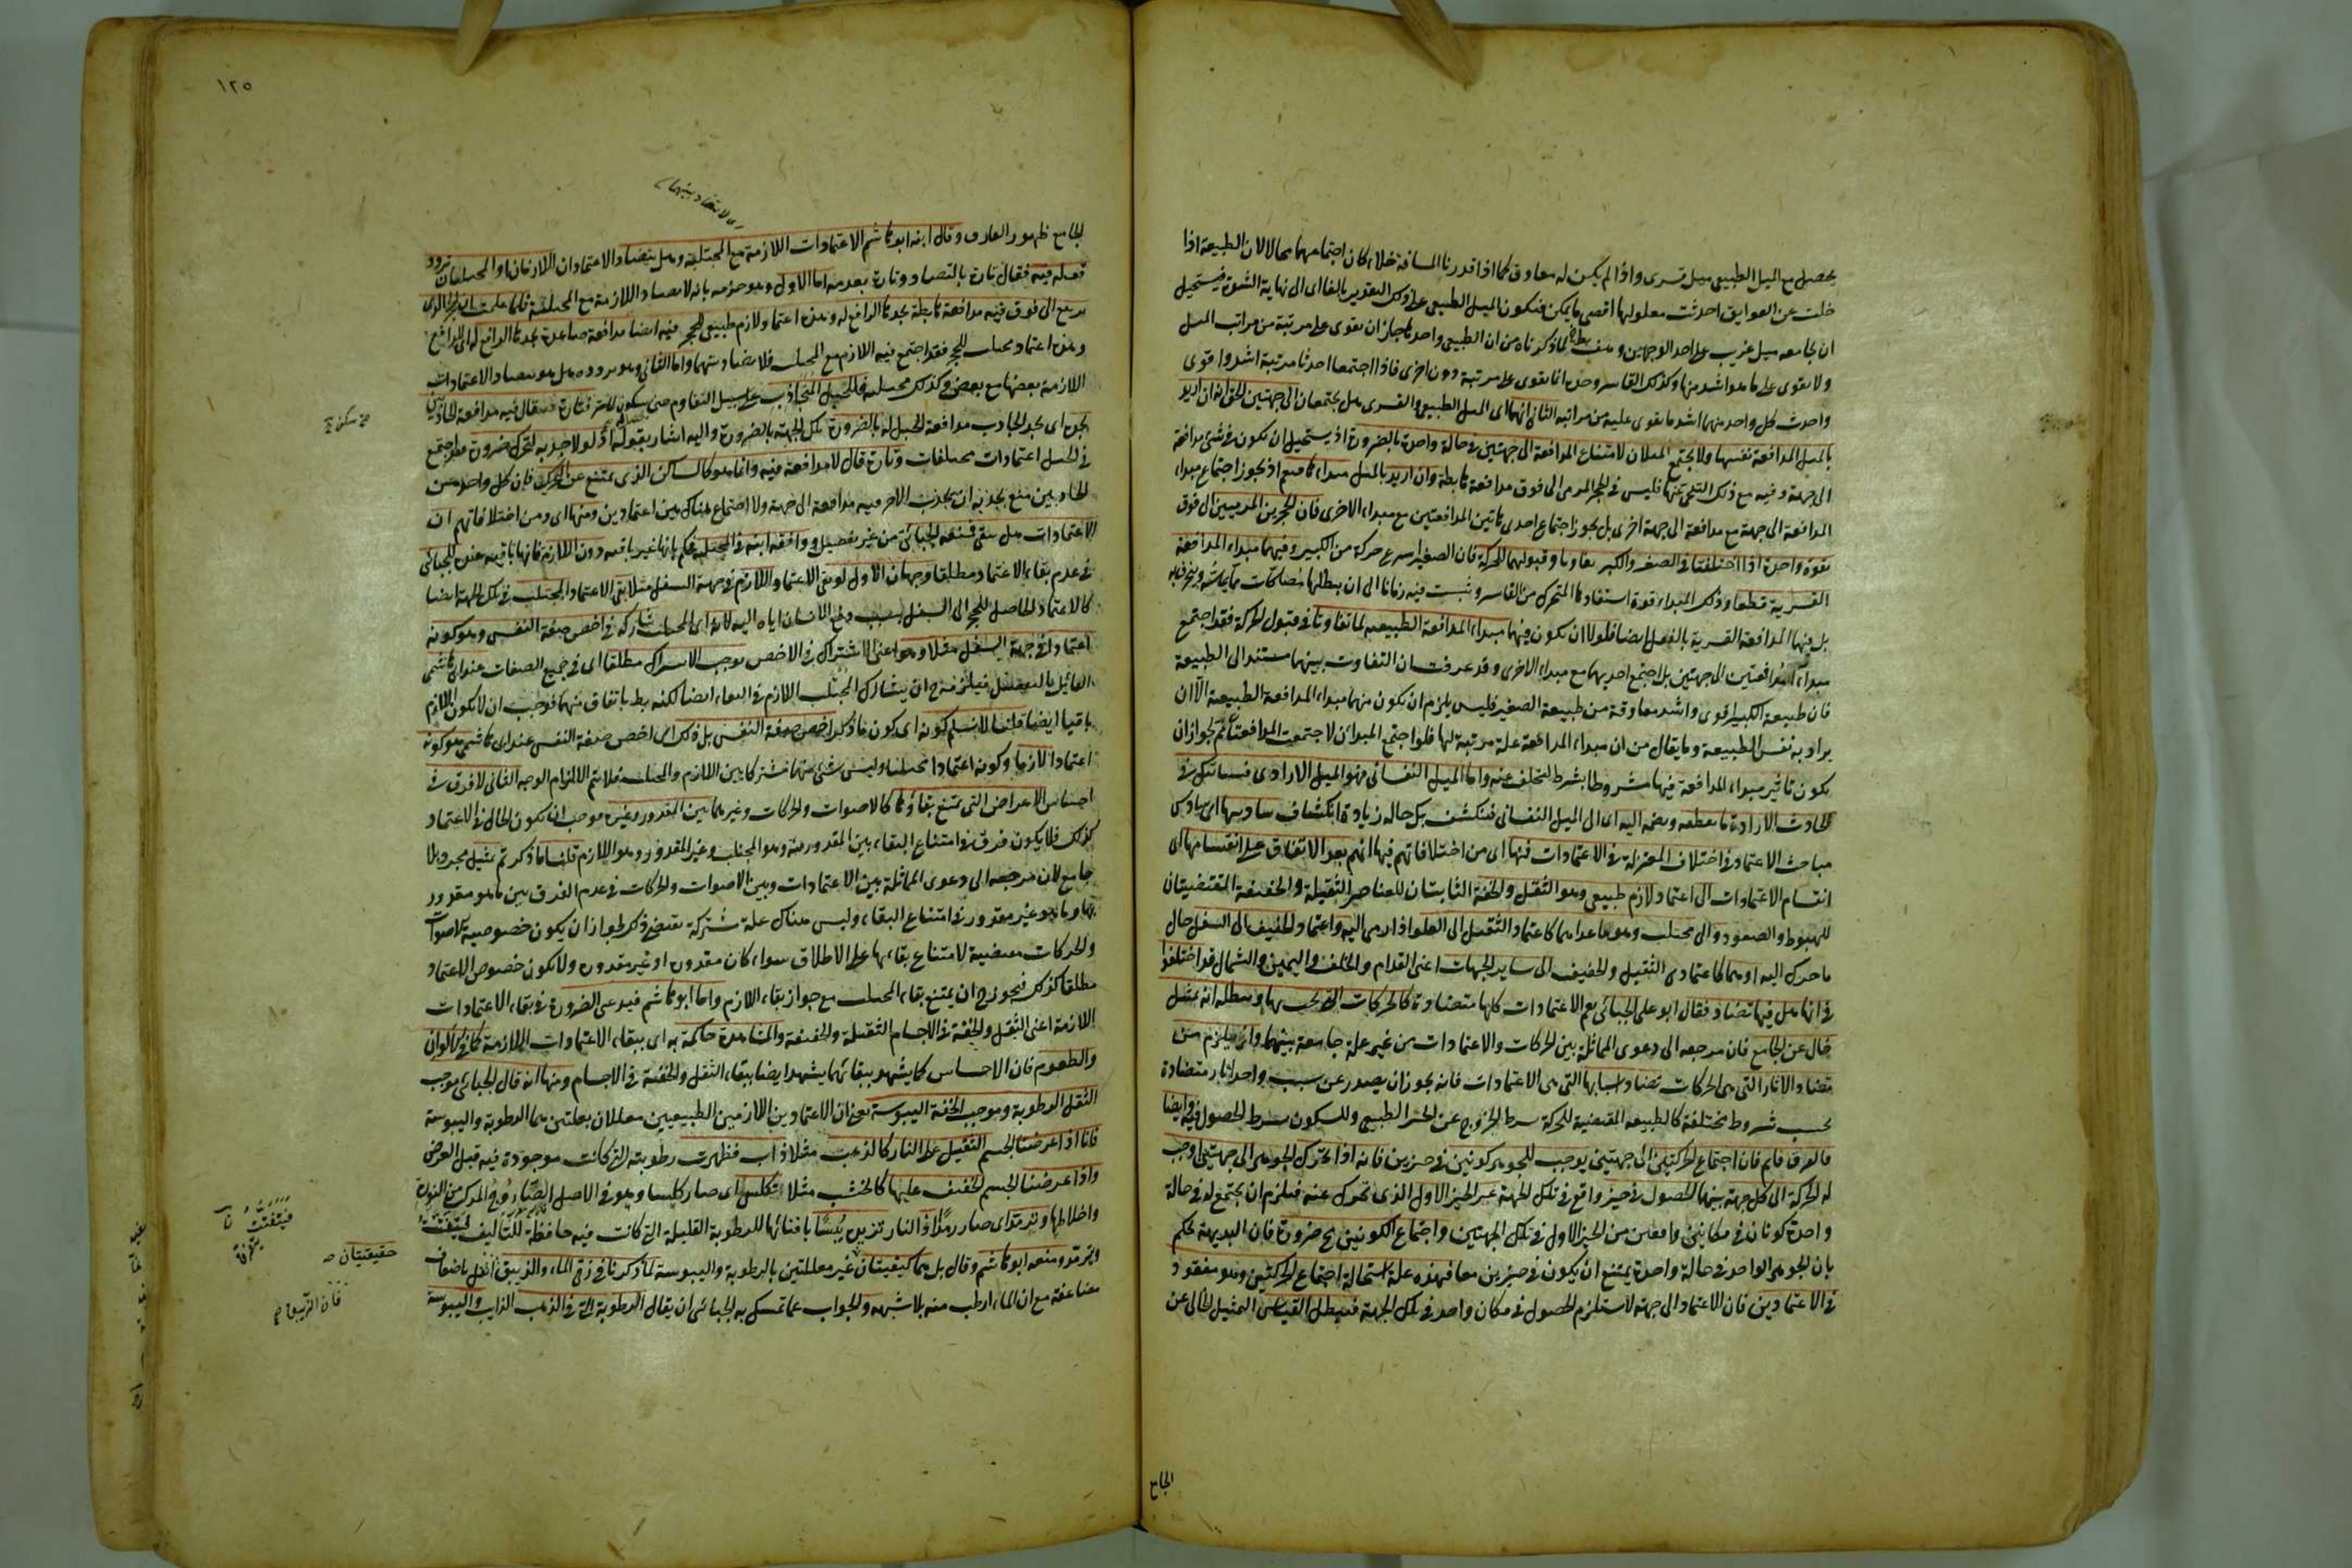 يحصل مع الميل الطبيعى ميل قسرى واذا لم يكن له معاوق كما اذا قدرنا المسافة خلاء كان اجتماعهما محالا لان الطبيعة اذا
خلت عن العوايق احدثت معلولها اقصى ما يمكن فيكون الميل الطبيعى على ذلك التقدير بالغا الى نهاية الشدة فيستحيل
ان يجامعه ميل غريب على احد الوجهين وضعف لما ذكرناه من ان الطبيعى واحدها جاز ان يقوى على مرتبة من مراتب الميل
ولا يقوى على ما هو اشد منها وكذلك القاسر وحده انما يقوى على مرتبة دون اخرى فاذا اجتمعا احدثا مرتبة اشد واقوى
واحدث كل واحد منهما اشد ما يقوى عليه من مراتبه الثانى انهما اى الميل الطبيعى والقسرى هل يجتمعان الى جهتين الحق انه ان اريد
بالميل المدافعة نفسها ولا يجتمع الميلان لامتناع المدافعة الى جهتين فى حالة واحدة بالضرورة اذ يستحيل ان يكون فى شئ مدافعة
الى جهة وفيه مع ذلك التنحى عنها فليس فى الحجر المرمى الى فوق مدافعة هابطة وان اريد بالميل مبداءها فنعم اذ يجوز اجتماع مبداء
المدافعة الى جهة مع مدافعة الى جهة اخرى بل يجوز اجتماع احدى هاتين المدافعتين مع مبداء الاخرى فان الحجرين المرميين الى فوق
بقوة واحدة اذا اختلفتا فى الصغر والكبر تفاوتا وقبولهما للحركة فان الصغير اسرع حركة من الكبير وفيهما مبداء المدافعة
القسرية قطعا وذلك المبداء قوة استفادها المتحرك من القاسر وثبت فيه زمانا الى ان يبطلها مصاكات مما يماسه وينخرق به
بل فيهما المدافعة القسرية بالفعل ايضا فلولا ان يكون فيهما مبداء المدافعة الطبيعية لما تفاوتا فى قبول الحركة فقد اجتمع
مبداء المدافعتين الى جهتين بل اجتمع احديهما مع مبداء الاخرى وقد عرفت ان التفاوت بينهما مستند الى الطبيعة
فان طبيعة الكبير اقوى واشد معاوقة من طبيعة الصغير فليس يلزم ان يكون منهما مبداء المدافعة الطبيعة الا ان
يراد به نفس الطبيعة وما يقال من ان مبداء المدافعة علة مرتبة لها فلو اجتمع المبدان لاجتمعت المدافعتان ثم لجواز ان
يكون تاثير مبداء المدافعة فيها مشروطا بشرط لتخلف عنه واما الميل النفسانى فهو الميل الارادى فسياتيك فى
لحادث الارادة ما يعطفه ويضمه اليه اى الى الميل النفسانى فينكشف بكل حاله زيادة انكشاف سادسها اى سادس
مباحث الاعتماد فى اختلاف المعتزلة فى الاعتمادات فمنها اى من اختلافاتهم فيها انهم بعد الاتفاق على انقسامها الى
انقسام الاعتمادات الى اعتماد لازم طبيعى وهو الثقل والخفة الثابتان للعناصر الثقيلة والخفيفة المقتضيتان
للهبوط والصعود والى مجتلب وهو ما عداهما كاعتماد الثقيل الى العلو اذا رمى اليه واعتماد الخفيف الى السفل حال
ما حرك اليه او هما كاعتمادى الثقيل والخفيف الى ساير الجهات اعنى القدام والخلف واليمين والشمال قد اختلفوا
فى انها هل فيها تضاد فقال ابو على الجبائى نعم الاعتمادات كلها متضادة كالحركات التى يجب بها وسطله انه تمثيل
خال عن الجامع فان مرجعه الى دعوى المماثلة بين الحركات والاعتمادات من غير علة جامعة بينهما وان يلزم من
تضاد الاثار التى هى الحركات تضاد اسبابها التى هى الاعتمادات فانه يجوز ان يصدر عن سبب واحد اثار متضادة
بحسب شروط مختلفة كالطبيعة المقتضية للحركة بشرط الخروج عن الحيز الطبيعى وللسكون بشرط الحصول فيه وايضا
فالفرق قايم فان اجتماع الحركتين الى جهتين يوجب للجوهر كونين فى حيزين فانه اذا تحرك الجوهر الى جهتين اوجب
له الحركة الى كل جهة بينهما الحصول فى حيز واقع فى تلك الجهة غير الحيز الاول الذى تحرك عنه فيلزم ان يجتمع له فى حالة
واحدة كونان فى مكانين واقعين من الحيز الاول فى تلك الجهتين واجتماع الكونين مح ضرورة فان البديهة تحكم
بان الجوهر الواحد فى حالة واحدة يمتنع ان يكون فى حيزين معا فهذه علة استحالة اجتماع الحركتين وهو مفقود
فى الاعتمادين فان الاعتماد الى جهة لا يستلزم الحصول فى مكان واحد فى تلك الجهة فيبطل القياس التمثيل الخالى عن
الجامع
١٢٥
اى لا تضاد بينهما
الجامع ظهور الفارق وقال ابنه ابو هاشم الاعتمادات اللازمة مع المجتلبة وهل يتضاد الاعتمادان اللازمان او المجتلبان تردد
قوله فيه فقال تارة بالتضاد وتارة بعدمه اما الاول وهو جزمه بانه لا تضاد اللازمة مع المجتلبة فلما علمت ان الحجر الذى
يرفع الى فوق فيه مدافعة هابطة يجدها الرافع له وهذه اعتماد لازم طبيعى للحجر فيه ايضا مدافعة صاعدة يجدها الدافع له الى الدافع
وهذه اعتماد مجتلب للحجر فقد اجتمع فيه اللازم مع المجتلب فلا تضاد بينهما واما الثانى وهو تردده هل هو يتضاد الاعتمادات
اللازمة بعضها مع بعض وكذلك مجتلبه فللحبل المتجاذب على سبيل التقاوم حتى يكون لاستر فتارة قال فيه مدافعة للجاذبين
يجده اى يجد الجاذب مدافعة الحبل له بالضرورة لكل الجهة بالضرورة واليه اشار بقوله اذ لولا جذبه لتحرك ضرورة فقد اجتمع
فى الحبل اعتمادات مختلفات وتارة قال لا مدافعة فيه وانما هو كالساكن الذى يمتنع عن التحرك فان كل واحد من
الجاذبين منع بجذبه ان يجذب الاخر فيه مدافعة الى جهة ولا اجتماع هناك بين اعتمادين ومنها اى ومن اختلافاتهم ان
الاعتمادات هل تبقى فمنعه الجبائى من غير تفصيل ووافقه ابنه فى المجتلبة فحكم بانها غير باقية دون اللازمة فانها باقية عنده للجبائى
فى عدم بقاء الاعتماد مطلقا وجهان الاول لو بقى الاعتماد اللازم فى جهة السفل مثلا بقى الاعتماد المجتلب فى تلك الجهة ايضا
كالاعتماد الحاصل للحجر الى السفل بسبب دفع الانسان اياه اليه لانه اى المجتلب شاركه فى اخص صفة النفس وهو كونه
اعتمادا فى جهة السفل مثلا وهو اعنى الاشتراك فى الاخص يوجب الاشتراك مطلقا اى فى جميع الصفات عند ابى هاشم
القايل بالتفصيل فيلزمه ح ان يشارك المجتلب اللازم فى البقاء ايضا لكنه بط باتفاق منهما فوجب ان لا يكون اللازم
باقيا ايضا قلنا لا نسلم كونه اى كون ما ذكر اخص صفة النفس بل ذلك اى اخص صفة النفس عند ابى هاشم هو كونه
اعتمادا لازما وكونه اعتمادا مجتلبا وليس شئ منهما مشتركا بين اللازم والمجتلب فلا يتم الالزام الوجه الثانى لا فرق فى
اجناس الاعراض التى يمتنع بقاؤها كالاصوات والحركات وغيرهما بين المقدور وغيره فوجب ان يكون الحال فى الاعتماد
كذلك فلا يكون فرق فى امتناع البقاء بين المقدور منه وهو المجتلب وغير المقدور وهو اللازم قلنا ما ذكرتم تمثيل مجرد بلا
جامع لان مرجعه الى دعوى المماثلة بين الاعتمادات وبين الاصوات والحركات فى عدم الفرق بين ما هو مقدور
بها وما هو غير مقدور فى امتناع البقاء وليس هناك علة مشتركة تقتضى ذكر لجواز ان يكون خصوصية الاصوات
والحركات مقتضية لامتناع بقاءها على الاطلاق سواء كان مقدوره او غير مقدوره ولا يكون خصوص الاعتماد
مطلقا كذلك فيجوز ح ان يمتنع بقاء المجتلب مع جواز بقاء اللازم واما ابو هاشم فيدعى الضرورة فى بقاء الاعتمادات
اللازمة اعنى الثقل والخفة فى الاجسام الثقيلة والخفيفة والمشاهدة حاكمة به اى ببقاء الاعتمادات اللازمة كما فى الالوان
والطعوم فان الاحساس كما يشهد ببقائها يشهد ايضا ببقاء الثقل والخفة فى الاجسام ومنها انه قال الجبائى موجب
الثقل الرطوبة وموجب الخفة اليبوسة يعنى ان الاعتمادين اللازمين الطبيعيين معللان بعلتين هما الرطوبة واليبوسة
فانا اذا عرضنا الجسم الثقيل على النار كالذهب مثلا ذاب فظهرت رطوبته التى كانت موجودة فيه قبل العرض
واذا عرضنا الجسم الخفيف عليها كالخشب مثلا تكلس اى صار كلسا وهو فى الاصل الصاروج المركب من النورة
واخلاطها وترمد اى صار رمادا فالنار تزيد يبسا بافنائها للرطوبة القليلة التى كانت فيه حافظة للتأليف فيتفتت
ويترمد ومنعه ابو هاشم وقال بل هما كيفيتان غير معللتين بالرطوبة واليبوسة لما ذكرنا فى زق الماء والزيبق اثقل باضعاف
مضاعفة مع ان الماء ارطب منه بلا شبهة والجواب عما تمسك به الجبائى ان يقال الرطوبة التى فى الذهب الذايب واليبوسة
فيتفتت
حقيقيتان صح
فان الزيبق صح